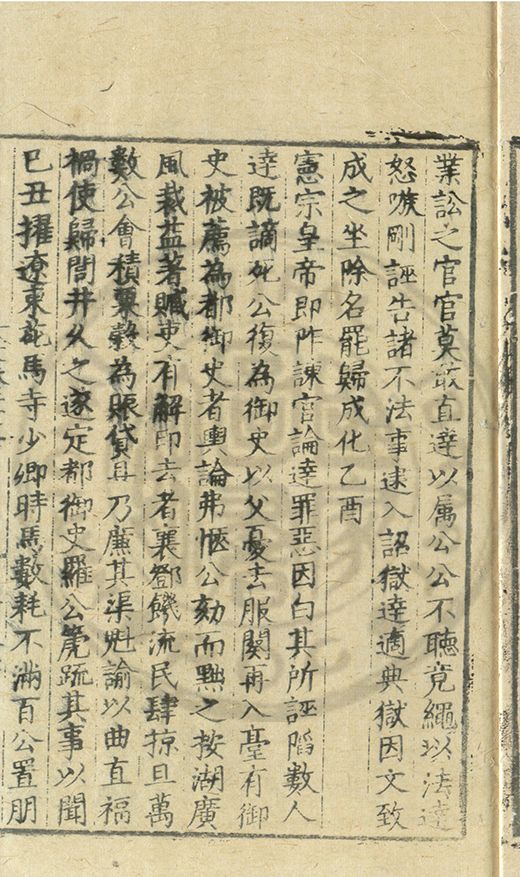 業訟之官官莫敢直達以属公公不聽竟繩以法達
怒嗾剛誣告諸不法事逮入詔獄達適典獄因文致
成之坐除名罷歸成化乙酉
憲宗皇帝即阼諫官論達罪惡因白其所誣陷數人
達既謫死公復為御史以父憂去服闋再入臺有御
史被薦為都御史者輿論弗愜公劾而黜之按湖廣
風裁益著贓吏有解印去者襄鄧饑流民肆掠且萬
數公會積粟穀為賑貸且乃廉其渠魁諭以曲直福
禍使歸閭井久之遂定都御史羅公箎疏其事以聞
巳丑擢遼東苑馬寺少卿時馬數耗不滿百公置朋